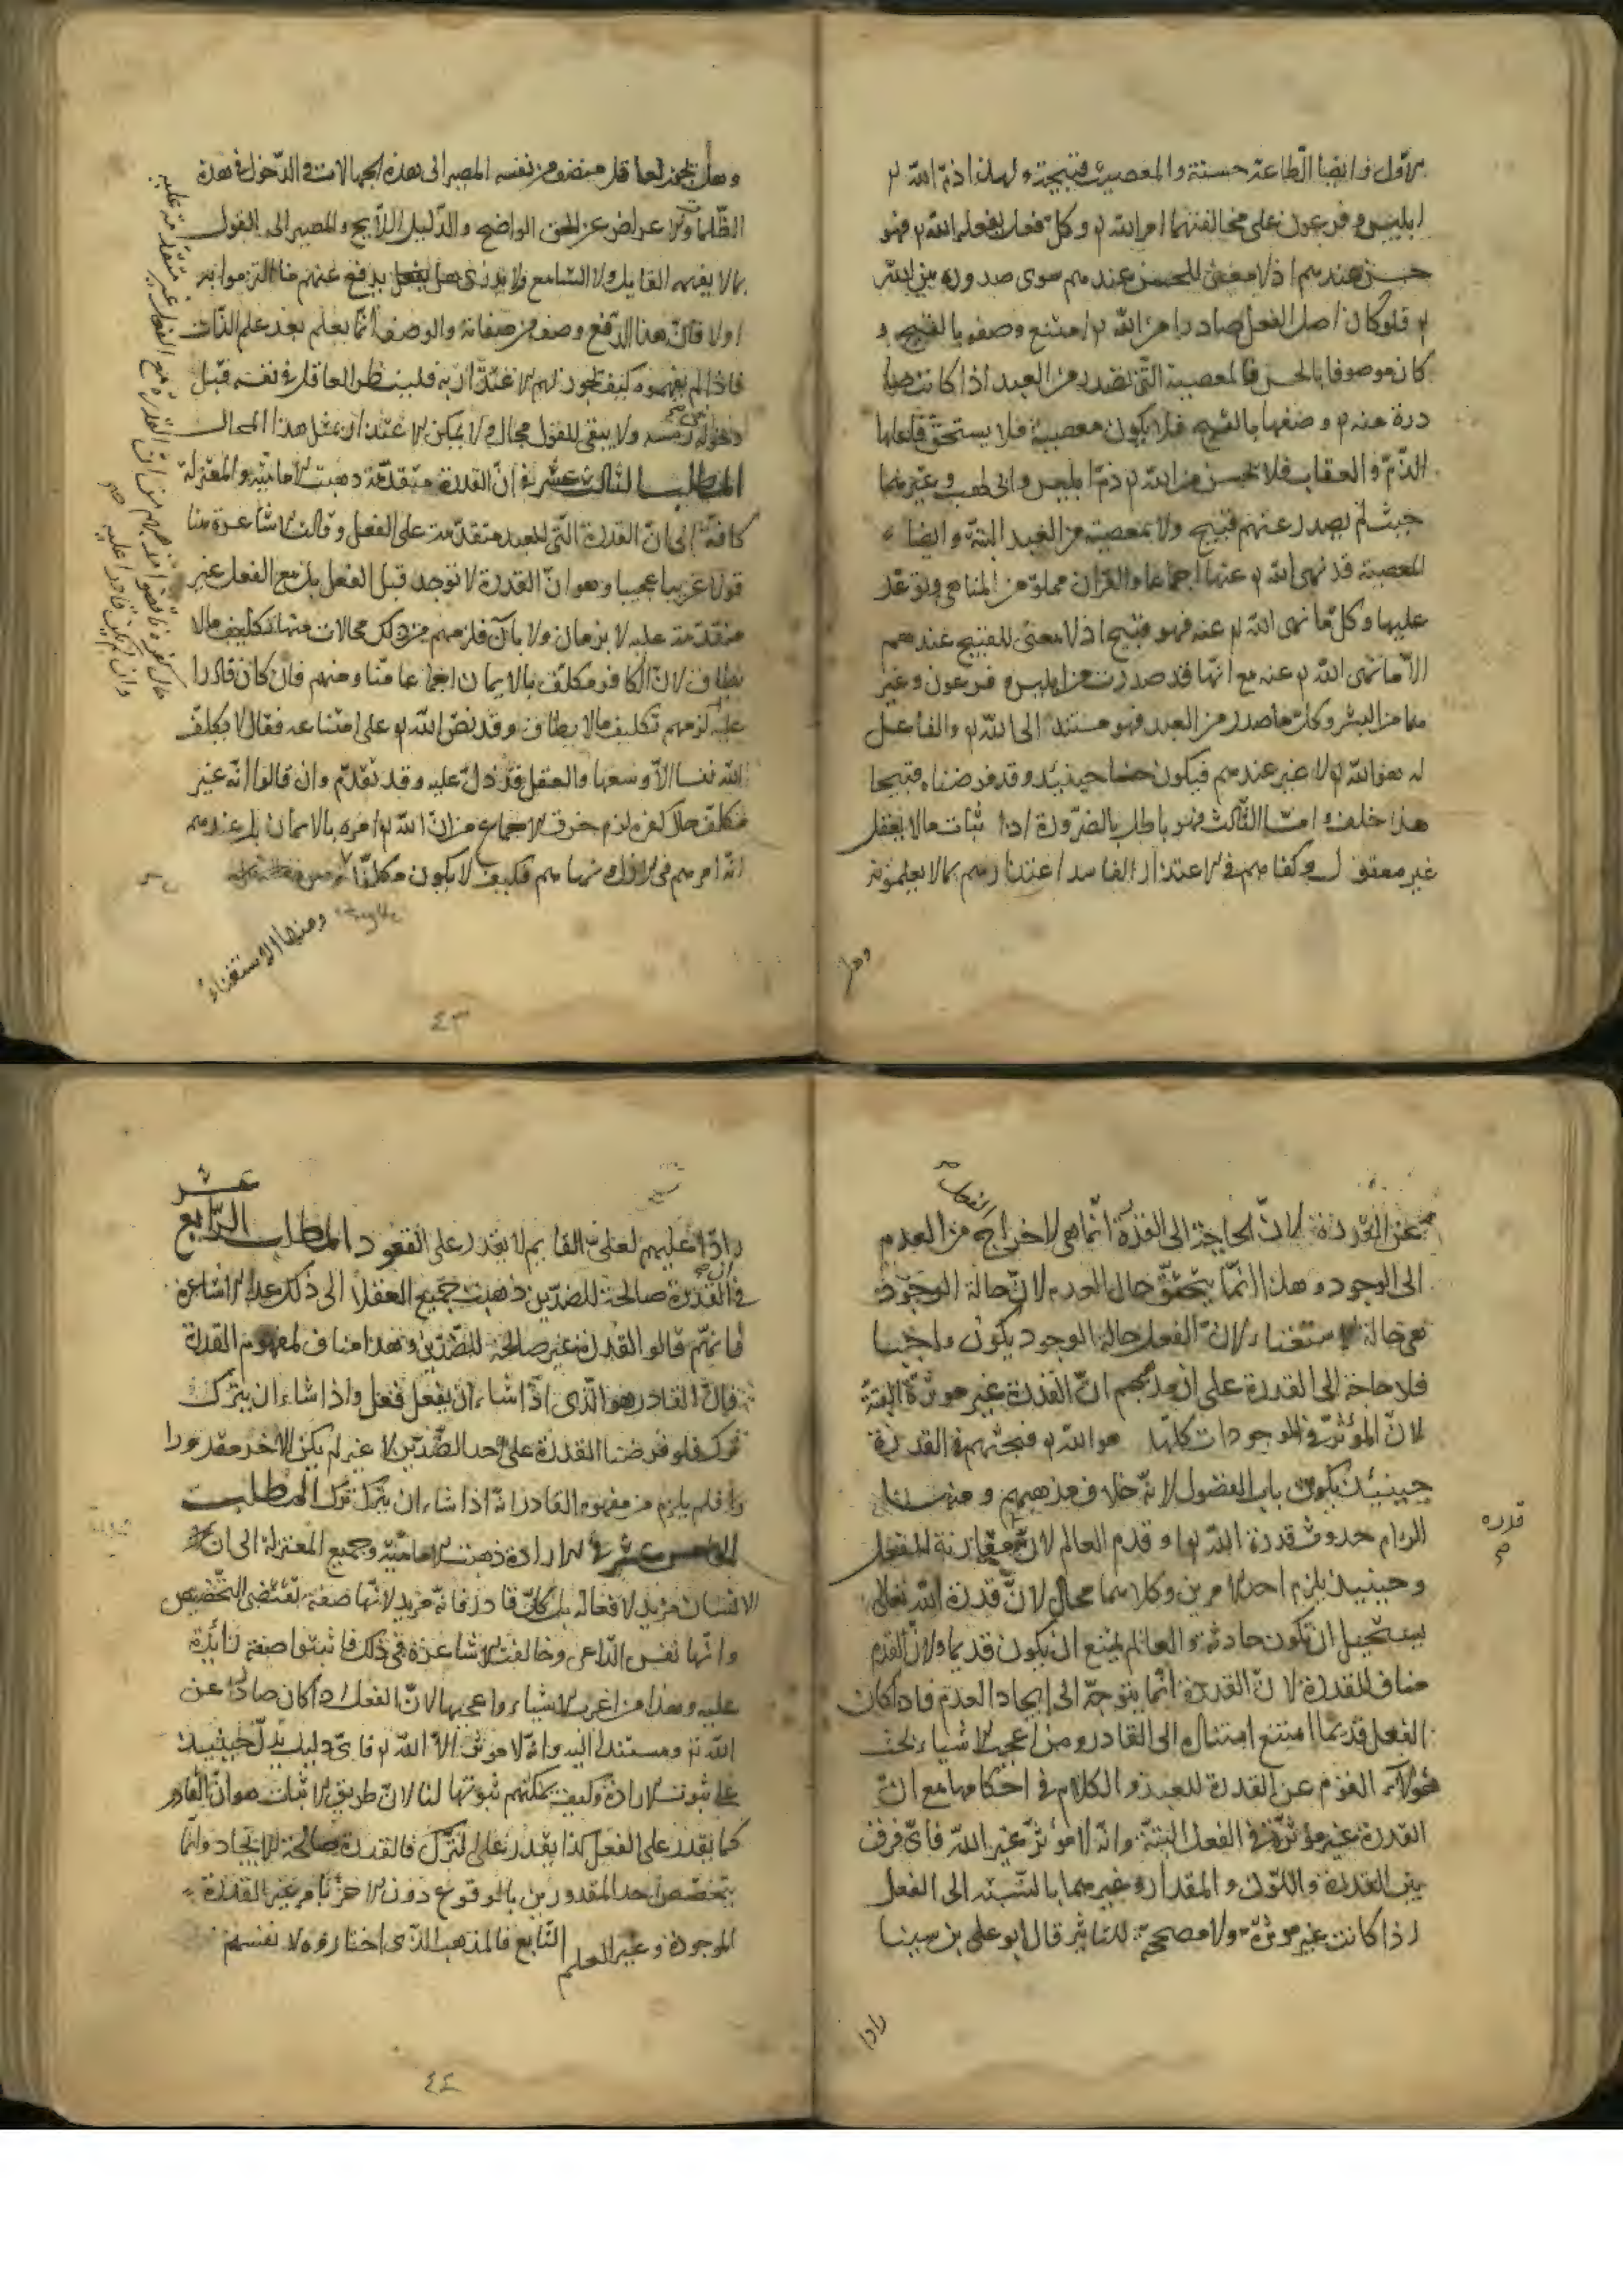 الأول وايضا الطاعة حسنة والمعصية قبيحة ولهذا ذم الله تع
ابليس وفرعون على مخالفتهما امر الله تع وكل فعل يفعله الله تع فهو
حسن عندهم اذ لا معنى للحسن عندهم سوى صدوره من الله
تع فلو كان اصل الفعل صادرا من الله تع امتنع وصفه بالقبيح و
كان موصوفا بالحسن فالمعصية التي تصدر من العبد اذا كانت صا
درة منه تع وصفها بالقبح فلا يكون معصية فلا يستحق فاعلها
الذم والعقاب فلا يحسن من الله تع ذم ابليس وابي لهب وغيرهما
حيث لم يصدر عنهم قبيح ولا معصية من العبد البتة وايضا
المعصية قد نهى الله تع عنها اجماعا والقران مملو من المناهي وتوعد
عليها وكل ما نهى الله تع عنه فهو قبيح اذ لا معنى للقبيح عندهم
الا ما نهى الله تع عنه مع انها قد صدرت من ابليس وفرعون وغير
هما من البشر وكل ما صدر من العبد فهو مستند الى الله تع والفاعل
له هو الله تع لا غير عندهم فيكون حسنا حينئذ وقد فرضناه قبيحا
هذا خلف واما الثالث فهو باطل بالضرورة اذا ثبات ما لا يعقل
غير معقول وكفاهم في الاعتذار الفاسد اعتذارهم بما لا يعلمونه
وهل
وهل يجوز لعاقل منصف من نفسه المصير الى هذه الجهالات والدخول في هذه
الظلمات والاعراض عن الحق الواضح والدليل اللايح والمصير الى القول
بما لا يفهمه القايل ولا السامع ولا يدري هل يدفع عنهم ما التزموا به
اولا فان هذا الدفع وصف من صفاته والوصف انما يعلم بعد علم الذات
فاذا لم يفهموه كيف يجوز لهم الاعتذار به فلينظر العاقل في نفسه قبل
دخوله رمسه ولا يبقى للقول مجال ولا يمكن الاعتذار بمثل هذا المحال
المطلب الثالث عشر في ان القدرة متقدمة ذهبت الامامية والمعتزلة
كافة الى ان القدرة التي للعبد متقدمة على الفعل وقالت الاشاعرة هنا
قولا غريبا عجيبا وهو ان القدرة لا توجد قبل الفعل بل مع الفعل غير
متقدمة عليه لا بزمان ولا بان فلزمهم من ذلك محالات منها تكليف مالا
يطاق لان الكافر مكلف بالايمان اجماعا منا ومنهم فان كان قادرا
عليه لزمهم تكليف مالا يطاق وقد نص الله تع على امتناعه فقال لا يكلف
الله نفسا الا وسعها والعقل قد دل عليه وقد تقدم وان قالوا انه غير
مكلف حال كفره لزم خرق الاجماع من ان الله تع امره بالايمان بل عندهم
انه امرهم في الازل ونهاهم فكيف لا يكون مكلفا
حال كفره ناقضوا مذهبهم من ان القدرة مع الفعل غير متقدمة عليه
وان لم يكن قادرا عليه صح
ومنها الاستغناء
٤٣
عن القدرة لان الحاجة الى القدرة انما هي لاخراج الفعل من العدم
الى الوجود وهذا انما يتحقق حال العدم لان حالة الوجود
هي حالة الاستغناء لان الفعل حالة الوجود يكون واجبا
فلا حاجة الى القدرة على ان مذهبهم ان القدرة غير موثرة البتة
لان المؤثر في الموجودات كلها هو الله تع فبحثهم في القدرة
حينئذ يكون باب الفضول لانه خلاف مذهبهم ومنها
الزام حدوث قدرة الله تع او قدم العالم لان مقارنة للفعل
قدره صح
وحينئذ يلزم احد الامرين وكلاهما محال لان قدرة الله تعالى
يستحيل ان تكون حادثة والعالم يمتنع ان يكون قديما ولان القدم
مناف للقدرة لان القدرة انما يتوجه الى ايجاد العدم فاذا كان
الفعل قديما امتنع استناده الى القادر ومن اعجب الاشياء بحث
هولاء القوم عن القدرة للعبد والكلام في احكامها مع ان
القدرة غير مؤثرة في الفعل البتة وانه لا مؤثر غير الله فاي فرق
بين القدرة واللون والمقدار وغيرهما بالنسبة الى الفعل
اذا كانت غير موثرة ولا مصححة للتاثير قال ابو علي بن سينا
رادا
رادا عليهم لعل القايم لا يقدر على القعود المطلب الرابع عشر
في ان القدرة صالحة للضدين ذهبت جميع العقلا الى ذلك عدا الاشاعرة
فانهم قالوا القدرة غير صالحة للضدين وهذا مناف لمفهوم القدرة
فان القادر هو الذي اذا شاء ان يفعل فعل واذا شاء ان يترك
ترك فلو فرضنا القدرة على احد الضدين لا غير لم يكن الاخر مقدورا
فلم يلزم من مفهوم القادر انه اذا شاء ان يترك ترك المطلب
الخامس عشر في الارادة ذهبت الامامية وجميع المعتزلة الى ان
الانسان مريد لافعاله بل كل قادر فانه مريد لانها صفة تقتضي التخصيص
وانها نفس الداعي وخالفت الاشاعرة في ذلك فاثبتوا صفة زائدة
عليه وهذا من اغرب الاشياء واعجبها لان الفعل اذا كان صادرا عن
الله تع ومستندا اليه وانه لا موثر الا الله تع فاي دليل يدل حينئذ
على ثبوت الارادة وكيف يمكنهم ثبوتها لنا لان طريق الاثبات هو ان القادر
كما يقدر على الفعل كذا يقدر على الترك فالقدرة صالحة للايجاد وانما
يتخصص احد المقدورين بالوقوع دون الاخر بامر غير القدرة
الموجودة وغير العلم التابع فالمذهب الذي اختاروه لانفسهم
٤٤